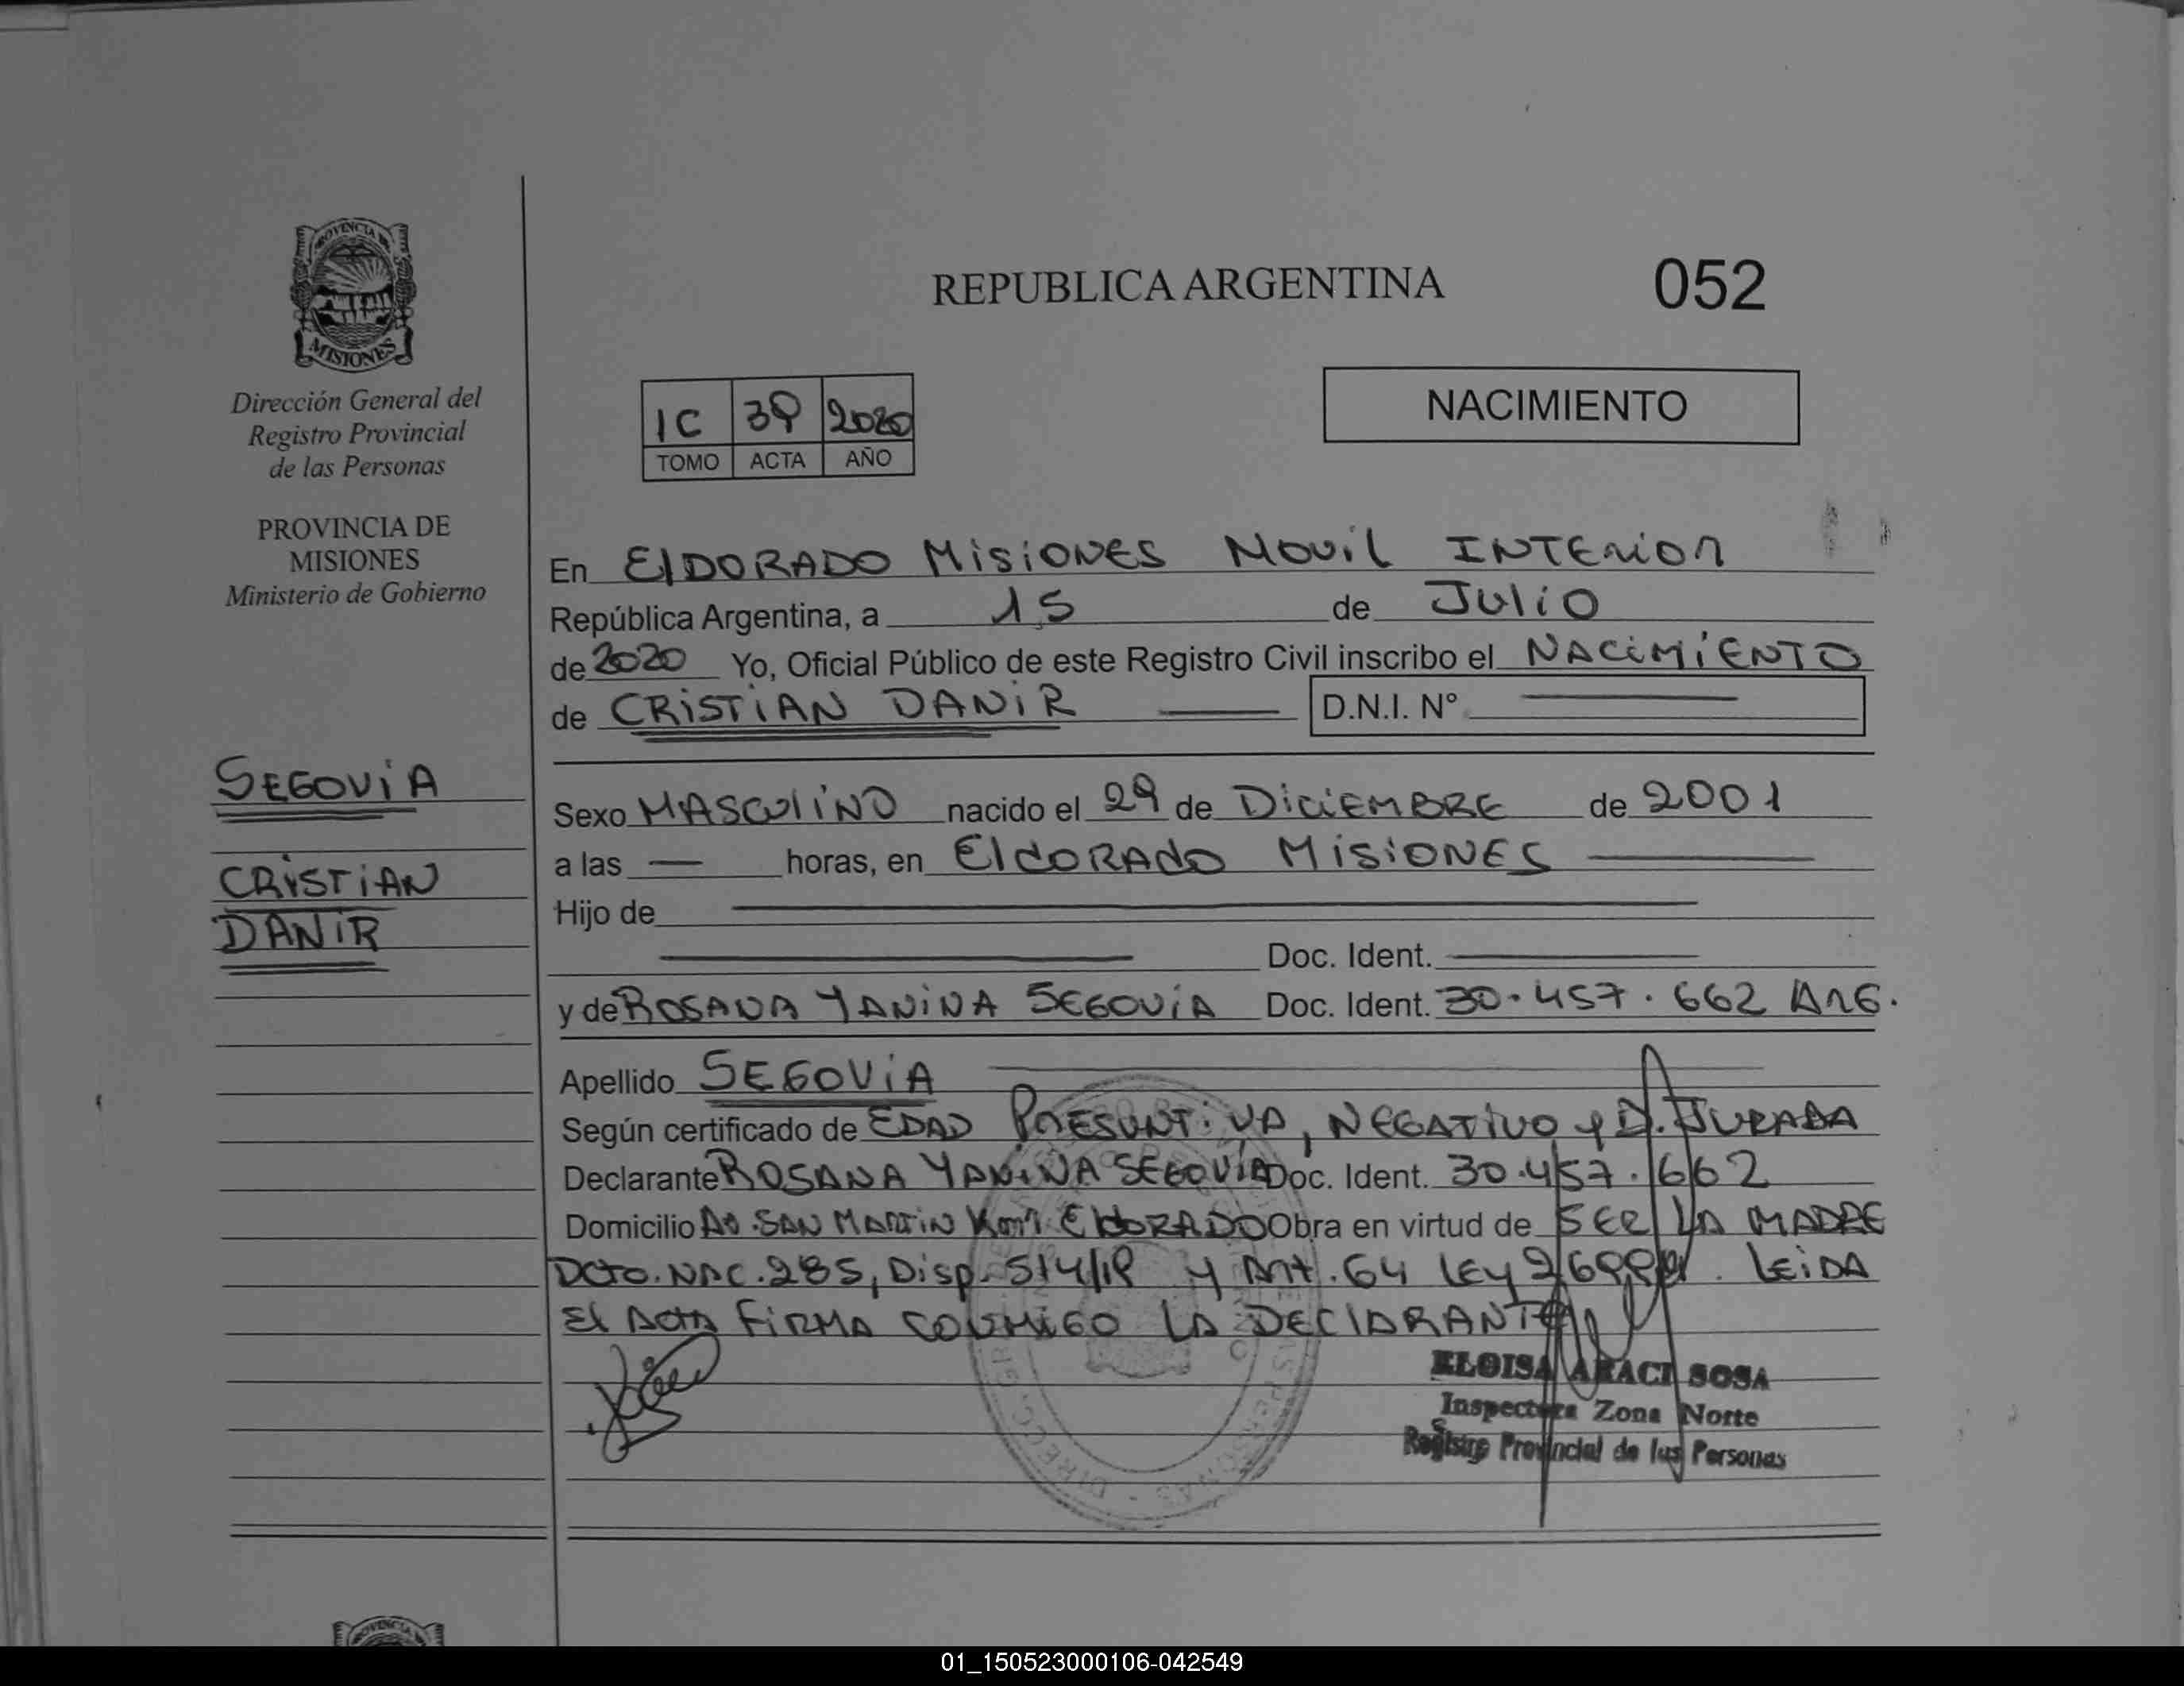 PROVINCIA DE
MISIONES
Dirección General del
Registro Provincial
de las Personas
PROVINCIA DE
MISIONES
Ministerio de Gobierno
SEGOVIA
CRISTIAN
DANIR
REPUBLICA ARGENTINA
052
NACIMIENTO
1C 39 2020
TOMO ACTA AÑO
En ElDORADO MISIONES MOVIL INTERIOR
República Argentina, a 15 de JULIO
de 2020 Yo, Oficial Público de este Registro Civil inscribo el NACIMIENTO
de CRISTIAN DANIR D.N.I. Nº
Sexo MASCULINO nacido el 29 de DICIEMBRE de 2001
a las — horas, en ElDORADO MISIONES
Hijo de
Doc. Ident.
y de ROSANA YANINA SEGOVIA Doc. Ident. 30.457.662 ARG.
Apellido SEGOVIA
Según certificado de EDAD PRESUNTIVA, NEGATIVO y D. JURADA
Declarante ROSANA YANINA SEGOVIA Doc. Ident. 30.457.662
Domicilio AV. SAN MARTIN Km ElDORADO Obra en virtud de SER LA MADRE
DCTO. NAC. 285, Disp. 514/19 y Art. 64 LEY LEIDA
El ACTA FIRMA CONMIGO LA DECLARANTE
ELOISA ARACI SOSA
Inspectora Zona Norte
Registro Provincial de las Personas
01_150523000106-042549